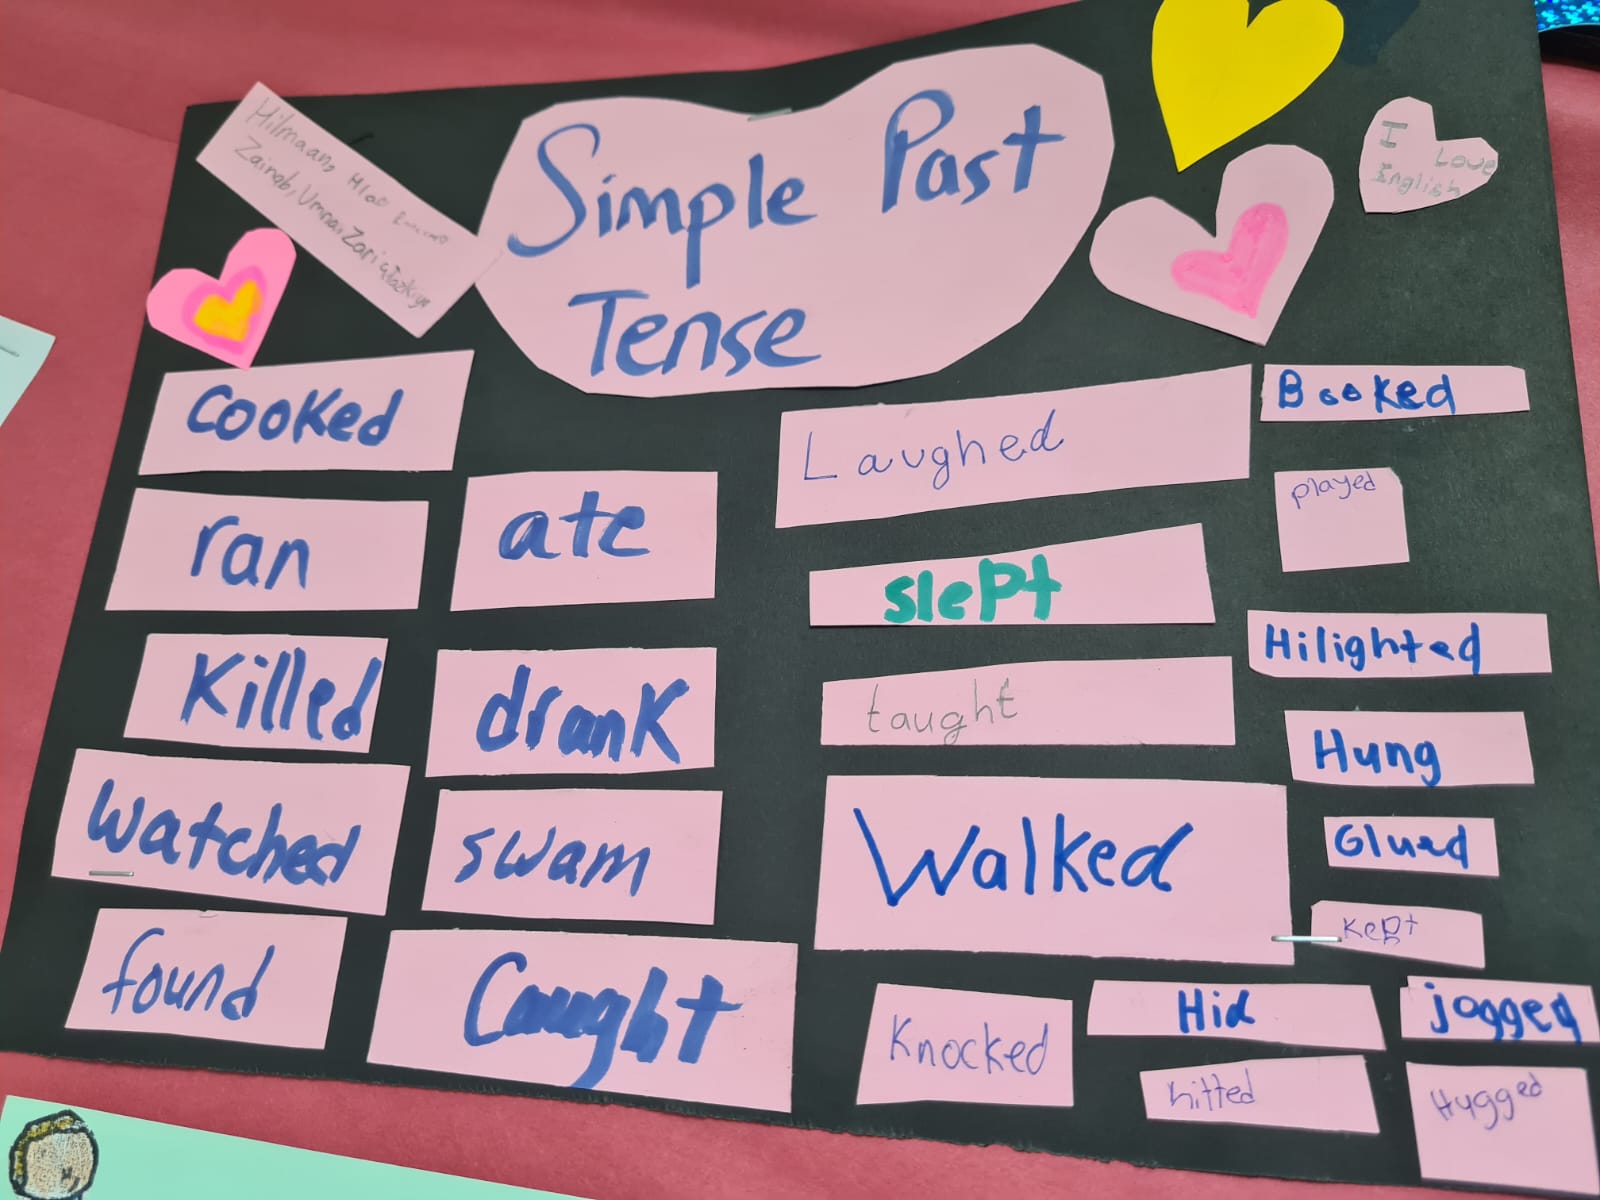 Simple Past
Tense
Hilmaan,
Zainab, Umnai Zari
I Love
English
Cooked
ran
ate
Killed
drank
Watched
swam
found
Caught
Laughed
slept
taught
Walked
Knocked
Booked
played
Hilighted
Hung
Glued
Kept
Hid
jogged
hitted
Hugged